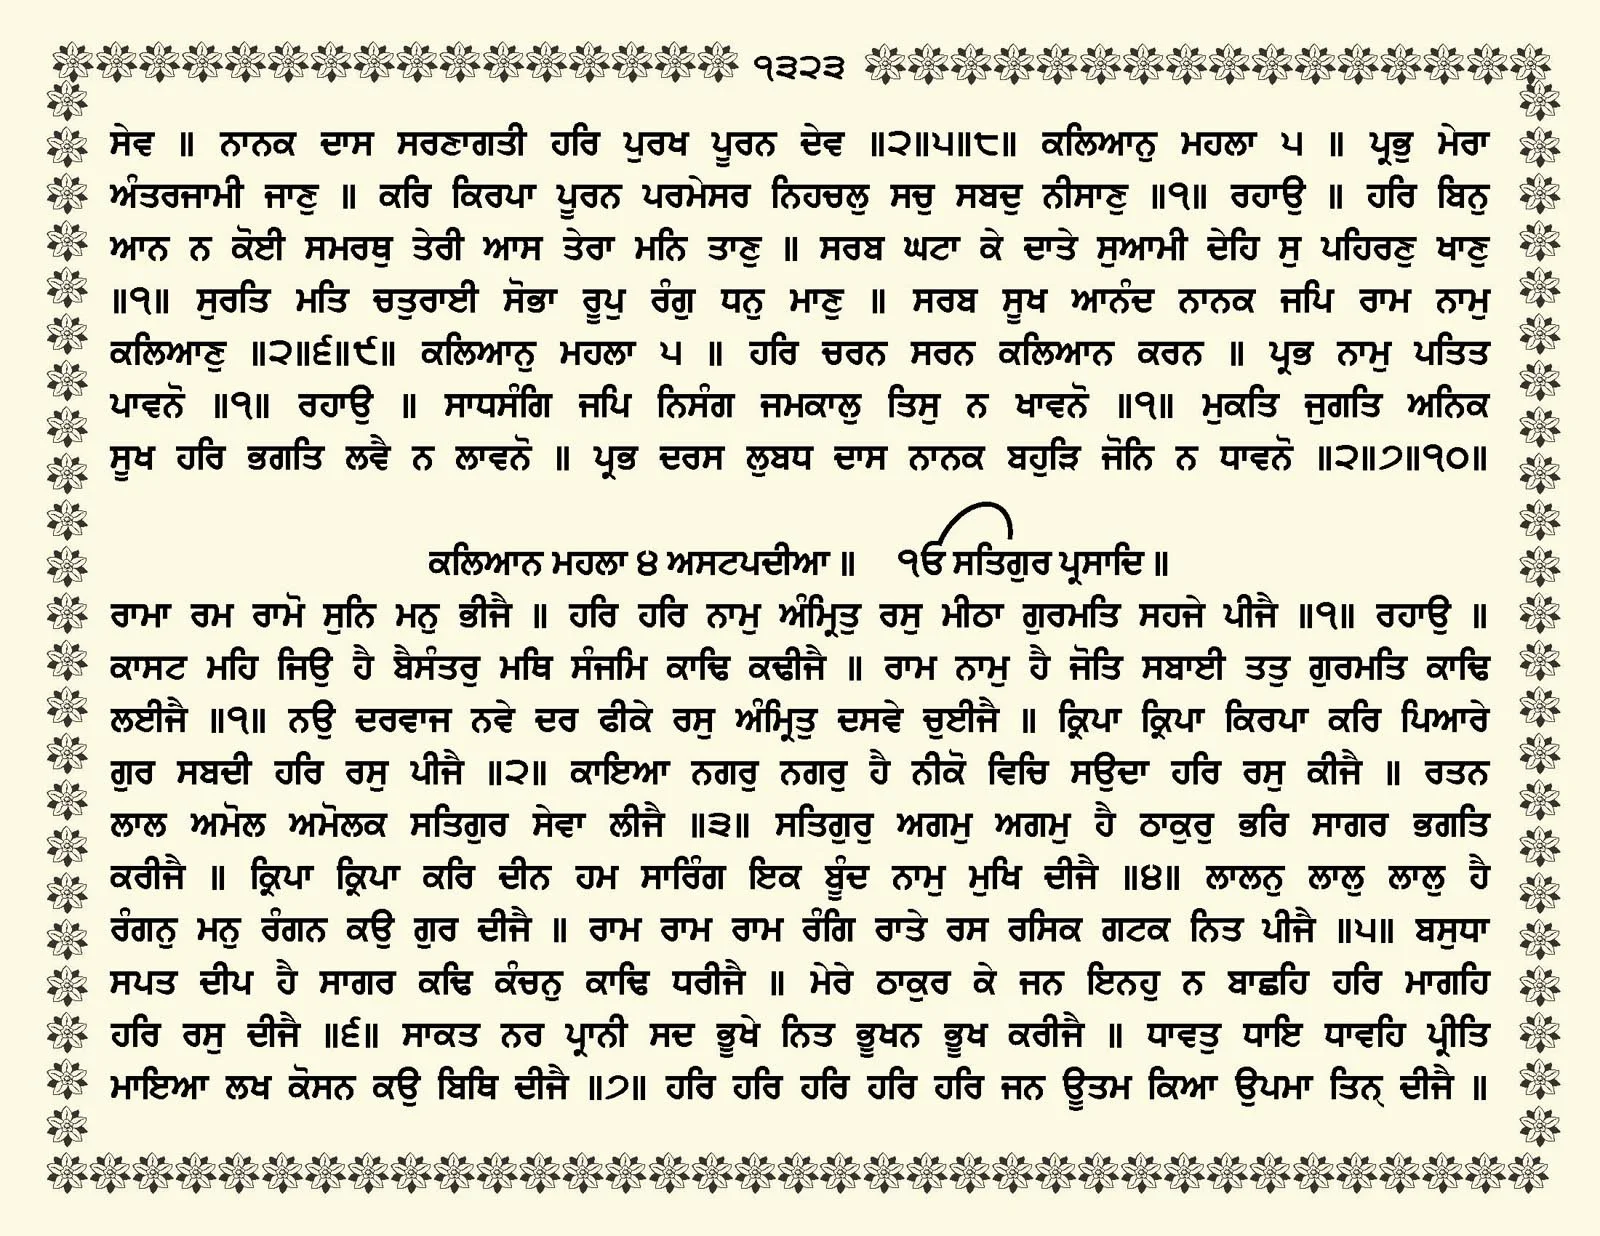 ੧੩੨੩
ਸੇਵ ॥ ਨਾਨਕ ਦਾਸ ਸਰਣਾਗਤੀ ਹਰਿ ਪੁਰਖ ਪੂਰਨ ਦੇਵ ॥੨॥੫॥੮॥ ਕਲਿਆਨੁ ਮਹਲਾ ੫ ॥ ਪ੍ਰਭੁ ਮੇਰਾ
ਅੰਤਰਜਾਮੀ ਜਾਣੁ ॥ ਕਰਿ ਕਿਰਪਾ ਪੂਰਨ ਪਰਮੇਸਰ ਨਿਹਚਲੁ ਸਚੁ ਸਬਦੁ ਨੀਸਾਣੁ ॥੧॥ ਰਹਾਉ ॥ ਹਰਿ ਬਿਨੁ
ਆਨ ਨ ਕੋਈ ਸਮਰਥੁ ਤੇਰੀ ਆਸ ਤੇਰਾ ਮਨਿ ਤਾਣੁ ॥ ਸਰਬ ਘਟਾ ਕੇ ਦਾਤੇ ਸੁਆਮੀ ਦੇਹਿ ਸੁ ਪਹਿਰਣੁ ਖਾਣੁ
॥੧॥ ਸੁਰਤਿ ਮਤਿ ਚਤੁਰਾਈ ਸੋਭਾ ਰੂਪੁ ਰੰਗੁ ਧਨੁ ਮਾਣੁ ॥ ਸਰਬ ਸੂਖ ਆਨੰਦ ਨਾਨਕ ਜਪਿ ਰਾਮ ਨਾਮੁ
ਕਲਿਆਣੁ ॥੨॥੬॥੯॥ ਕਲਿਆਨੁ ਮਹਲਾ ੫ ॥ ਹਰਿ ਚਰਨ ਸਰਨ ਕਲਿਆਨ ਕਰਨ ॥ ਪ੍ਰਭ ਨਾਮੁ ਪਤਿਤ
ਪਾਵਨੋ ॥੧॥ ਰਹਾਉ ॥ ਸਾਧਸੰਗਿ ਜਪਿ ਨਿਸੰਗ ਜਮਕਾਲੁ ਤਿਸੁ ਨ ਖਾਵਨੋ ॥੧॥ ਮੁਕਤਿ ਜੁਗਤਿ ਅਨਿਕ
ਸੂਖ ਹਰਿ ਭਗਤਿ ਲਵੈ ਨ ਲਾਵਨੋ ॥ ਪ੍ਰਭ ਦਰਸ ਲੁਬਧ ਦਾਸ ਨਾਨਕ ਬਹੁੜਿ ਜੋਨਿ ਨ ਧਾਵਨੋ ॥੨॥੭॥੧੦॥
ਕਲਿਆਨ ਮਹਲਾ ੪ ਅਸਟਪਦੀਆ ॥ ੴ ਸਤਿਗੁਰ ਪ੍ਰਸਾਦਿ ॥
ਰਾਮਾ ਰਮ ਰਾਮੋ ਸੁਨਿ ਮਨੁ ਭੀਜੈ ॥ ਹਰਿ ਹਰਿ ਨਾਮੁ ਅੰਮ੍ਰਿਤੁ ਰਸੁ ਮੀਠਾ ਗੁਰਮਤਿ ਸਹਜੇ ਪੀਜੈ ॥੧॥ ਰਹਾਉ ॥
ਕਾਸਟ ਮਹਿ ਜਿਉ ਹੈ ਬੈਸੰਤਰੁ ਮਥਿ ਸੰਜਮਿ ਕਾਢਿ ਕਢੀਜੈ ॥ ਰਾਮ ਨਾਮੁ ਹੈ ਜੋਤਿ ਸਬਾਈ ਤਤੁ ਗੁਰਮਤਿ ਕਾਢਿ
ਲਈਜੈ ॥੧॥ ਨਉ ਦਰਵਾਜ ਨਵੇ ਦਰ ਫੀਕੇ ਰਸੁ ਅੰਮ੍ਰਿਤੁ ਦਸਵੇ ਚੁਈਜੈ ॥ ਕ੍ਰਿਪਾ ਕ੍ਰਿਪਾ ਕਿਰਪਾ ਕਰਿ ਪਿਆਰੇ
ਗੁਰ ਸਬਦੀ ਹਰਿ ਰਸੁ ਪੀਜੈ ॥੨॥ ਕਾਇਆ ਨਗਰੁ ਨਗਰੁ ਹੈ ਨੀਕੋ ਵਿਚਿ ਸਉਦਾ ਹਰਿ ਰਸੁ ਕੀਜੈ ॥ ਰਤਨ
ਲਾਲ ਅਮੋਲ ਅਮੋਲਕ ਸਤਿਗੁਰ ਸੇਵਾ ਲੀਜੈ ॥੩॥ ਸਤਿਗੁਰੁ ਅਗਮੁ ਅਗਮੁ ਹੈ ਠਾਕੁਰੁ ਭਰਿ ਸਾਗਰ ਭਗਤਿ
ਕਰੀਜੈ ॥ ਕ੍ਰਿਪਾ ਕ੍ਰਿਪਾ ਕਰਿ ਦੀਨ ਹਮ ਸਾਰਿੰਗ ਇਕ ਬੂੰਦ ਨਾਮੁ ਮੁਖਿ ਦੀਜੈ ॥੪॥ ਲਾਲਨੁ ਲਾਲੁ ਲਾਲੁ ਹੈ
ਰੰਗਨੁ ਮਨੁ ਰੰਗਨ ਕਉ ਗੁਰ ਦੀਜੈ ॥ ਰਾਮ ਰਾਮ ਰਾਮ ਰੰਗਿ ਰਾਤੇ ਰਸ ਰਸਿਕ ਗਟਕ ਨਿਤ ਪੀਜੈ ॥੫॥ ਬਸੁਧਾ
ਸਪਤ ਦੀਪ ਹੈ ਸਾਗਰ ਕਢਿ ਕੰਚਨੁ ਕਾਢਿ ਧਰੀਜੈ ॥ ਮੇਰੇ ਠਾਕੁਰ ਕੇ ਜਨ ਇਨਹੁ ਨ ਬਾਛਹਿ ਹਰਿ ਮਾਗਹਿ
ਹਰਿ ਰਸੁ ਦੀਜੈ ॥੬॥ ਸਾਕਤ ਨਰ ਪ੍ਰਾਨੀ ਸਦ ਭੂਖੇ ਨਿਤ ਭੂਖਨ ਭੂਖ ਕਰੀਜੈ ॥ ਧਾਵਤੁ ਧਾਇ ਧਾਵਹਿ ਪ੍ਰੀਤਿ
ਮਾਇਆ ਲਖ ਕੋਸਨ ਕਉ ਬਿਥਿ ਦੀਜੈ ॥੭॥ ਹਰਿ ਹਰਿ ਹਰਿ ਹਰਿ ਹਰਿ ਜਨ ਊਤਮ ਕਿਆ ਉਪਮਾ ਤਿਨ੍ ਦੀਜੈ ॥